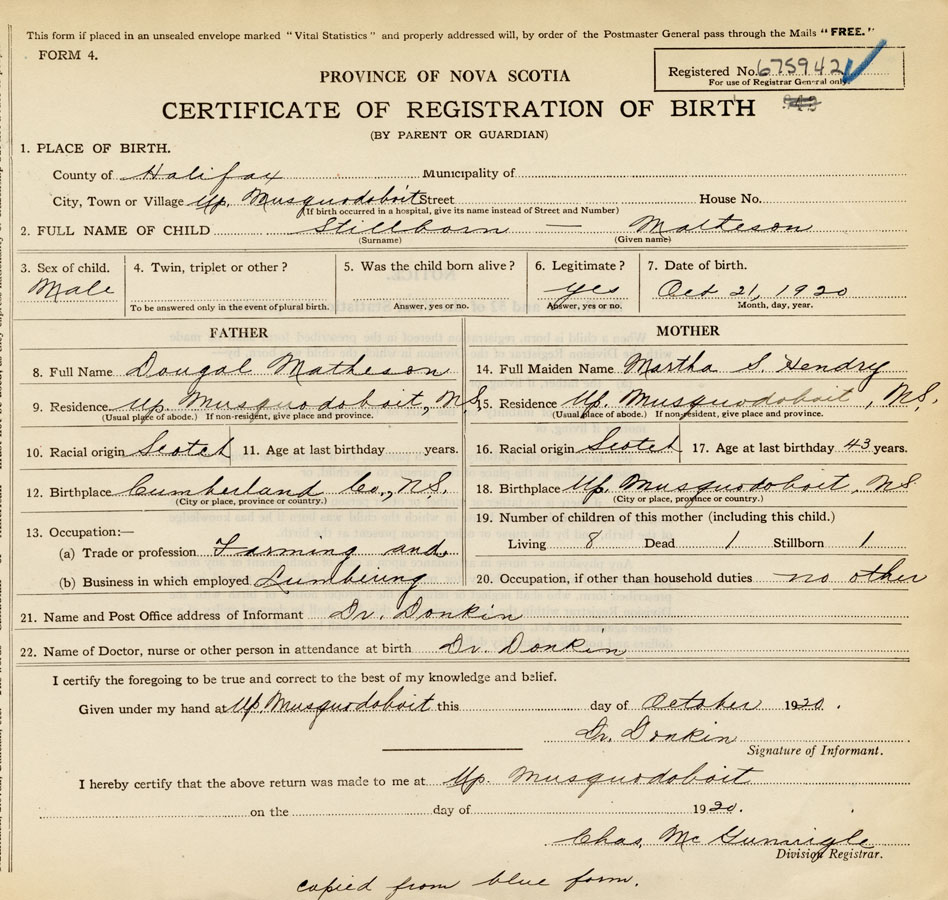 This form if placed in an unsealed envelope marked "Vital Statistics" and properly addressed will, by order of the Postmaster General pass through the Mails "FREE."
FORM 4.
Registered No. 675942
For use of Registrar General only.
PROVINCE OF NOVA SCOTIA
CERTIFICATE OF REGISTRATION OF BIRTH
(BY PARENT OR GUARDIAN)
1. PLACE OF BIRTH.
County of Halifax Municipality of
City, Town or Village Up. Musquodoboit Street House No.
(If birth occurred in a hospital, give its name instead of Street and Number)
2. FULL NAME OF CHILD Stillborn — Matheson
(Surname) (Given name)
3. Sex of child. 4. Twin, triplet or other? 5. Was the child born alive? 6. Legitimate? 7. Date of birth.
Male yes Oct 21, 1920
To be answered only in the event of plural birth. Answer, yes or no. Answer, yes or no. Month, day, year.
FATHER MOTHER
8. Full Name Dougal Matheson 14. Full Maiden Name Martha S. Hendry
9. Residence Up. Musquodoboit, N.S. 15. Residence Up. Musquodoboit, N.S.
(Usual place of abode.) If non-resident, give place and province. (Usual place of abode.) If non-resident, give place and province.
10. Racial origin Scotch 11. Age at last birthday years. 16. Racial origin Scotch 17. Age at last birthday 43 years.
12. Birthplace Cumberland Co., N.S. 18. Birthplace Up. Musquodoboit, N.S
(City or place, province or country.) (City or place, province or country.)
13. Occupation:— 19. Number of children of this mother (including this child.)
(a) Trade or profession Farming and Living 8 Dead 1 Stillborn 1
(b) Business in which employed Lumbering 20. Occupation, if other than household duties no other
21. Name and Post Office address of Informant Dr. Donkin
22. Name of Doctor, nurse or other person in attendance at birth Dr. Donkin
I certify the foregoing to be true and correct to the best of my knowledge and belief.
Given under my hand at Up. Musquodoboit this day of October 1920.
Dr. Donkin
Signature of Informant.
I hereby certify that the above return was made to me at Up. Musquodoboit
on the day of 1920.
Chas. McGunnigle
Division Registrar.
copied from blue form.